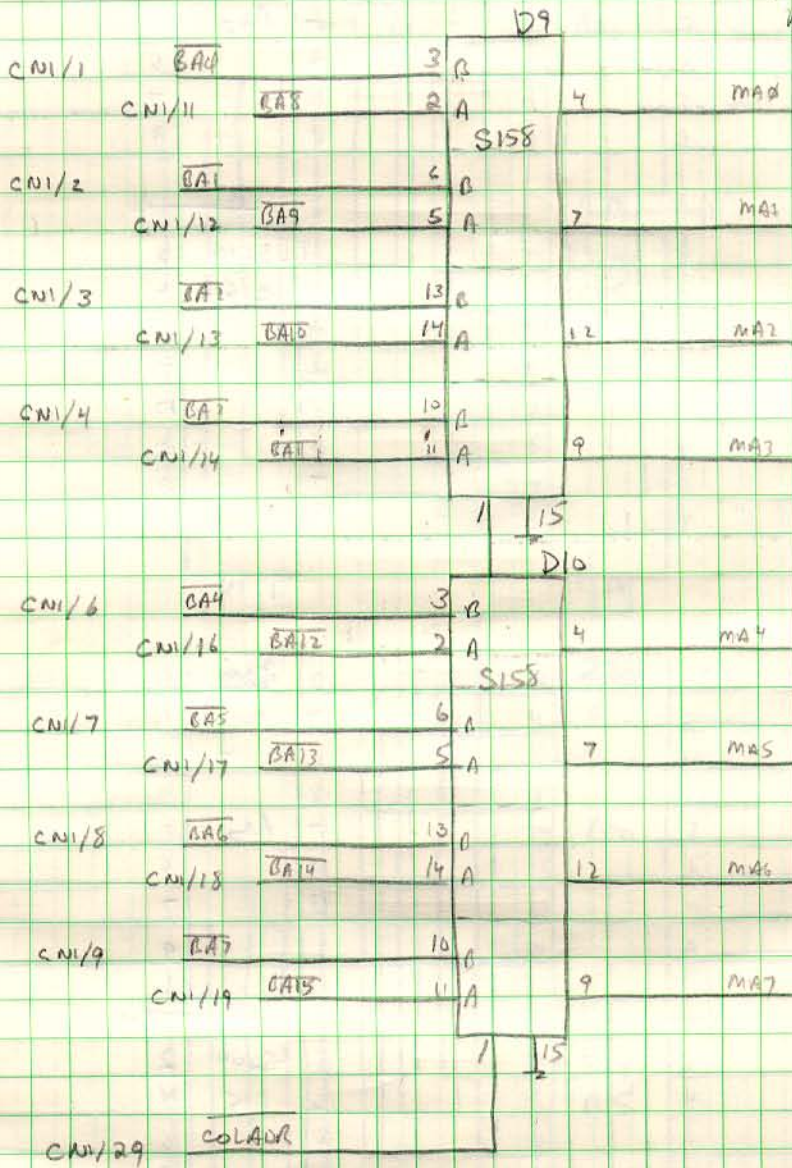 D9
CN1/1 BA4 3 B
CN1/11 BA8 2 A 4 MAØ
S158
CN1/2 BA1 6 B
CN1/12 BA9 5 A 7 MA1
CN1/3 BA2 13 B
CN1/13 BA10 14 A 12 MA2
CN1/4 BA3 10 B
CN1/14 BA11 11 A 9 MA3
1 15
D10
CN1/6 BA4 3 B
CN1/16 BA12 2 A 4 MA4
S158
CN1/7 BA5 6 B
CN1/17 BA13 5 A 7 MA5
CN1/8 BA6 13 B
CN1/18 BA14 14 A 12 MA6
CN1/9 BA7 10 B
CN1/19 BA15 11 A 9 MA7
1 15
CN1/29 COLADR